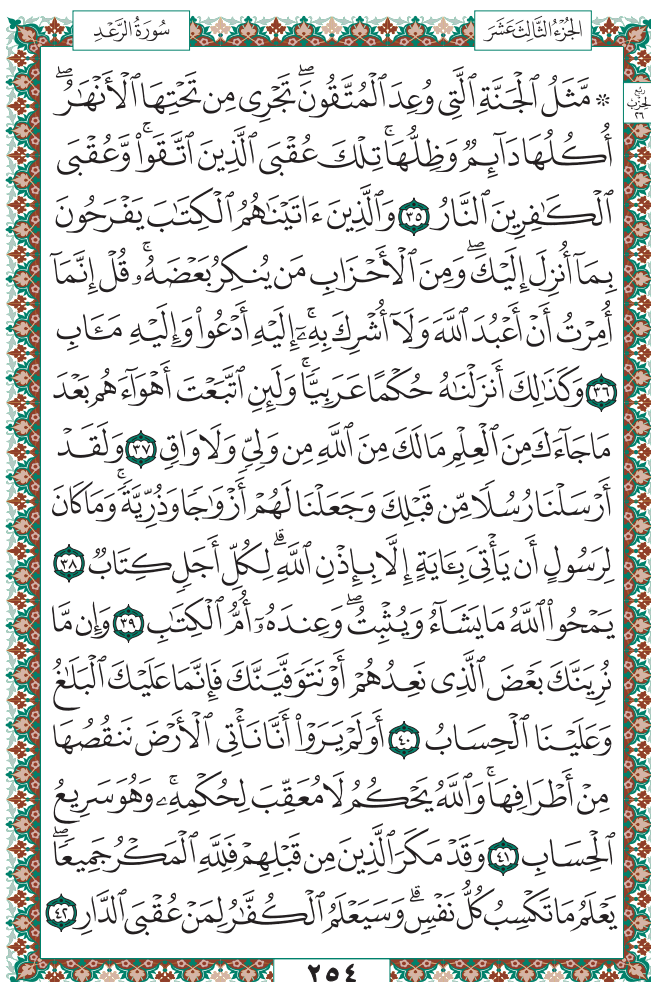 سُورَةُ الرَّعْدِ
الجُزْءُ الثَّالِثَ عَشَرَ
رُبْع الحِزْب ٢٦
۞ مَّثَلُ ٱلْجَنَّةِ ٱلَّتِى وُعِدَ ٱلْمُتَّقُونَ ۖ تَجْرِى مِن تَحْتِهَا ٱلْأَنْهَٰرُ ۖ
أُكُلُهَا دَآئِمٌ وَظِلُّهَا ۚ تِلْكَ عُقْبَى ٱلَّذِينَ ٱتَّقَوا۟ ۚ وَّعُقْبَى
ٱلْكَٰفِرِينَ ٱلنَّارُ ٣٥ وَٱلَّذِينَ ءَاتَيْنَٰهُمُ ٱلْكِتَٰبَ يَفْرَحُونَ
بِمَآ أُنزِلَ إِلَيْكَ ۖ وَمِنَ ٱلْأَحْزَابِ مَن يُنكِرُ بَعْضَهُۥ ۚ قُلْ إِنَّمَآ
أُمِرْتُ أَنْ أَعْبُدَ ٱللَّهَ وَلَآ أُشْرِكَ بِهِۦٓ ۚ إِلَيْهِ أَدْعُوا۟ وَإِلَيْهِ مَـَٔابِ
٣٦ وَكَذَٰلِكَ أَنزَلْنَٰهُ حُكْمًا عَرَبِيًّا ۚ وَلَئِنِ ٱتَّبَعْتَ أَهْوَآءَهُم بَعْدَ
مَا جَآءَكَ مِنَ ٱلْعِلْمِ مَا لَكَ مِنَ ٱللَّهِ مِن وَلِىٍّ وَلَا وَاقٍ ٣٧ وَلَقَدْ
أَرْسَلْنَا رُسُلًا مِّن قَبْلِكَ وَجَعَلْنَا لَهُمْ أَزْوَٰجًا وَذُرِّيَّةً ۚ وَمَا كَانَ
لِرَسُولٍ أَن يَأْتِىَ بِـَٔايَةٍ إِلَّا بِإِذْنِ ٱللَّهِ ۗ لِكُلِّ أَجَلٍ كِتَابٌ ٣٨
يَمْحُوا۟ ٱللَّهُ مَا يَشَآءُ وَيُثْبِتُ ۖ وَعِندَهُۥٓ أُمُّ ٱلْكِتَٰبِ ٣٩ وَإِن مَّا
نُرِيَنَّكَ بَعْضَ ٱلَّذِى نَعِدُهُمْ أَوْ نَتَوَفَّيَنَّكَ فَإِنَّمَا عَلَيْكَ ٱلْبَلَٰغُ
وَعَلَيْنَا ٱلْحِسَابُ ٤٠ أَوَلَمْ يَرَوْا۟ أَنَّا نَأْتِى ٱلْأَرْضَ نَنقُصُهَا
مِنْ أَطْرَافِهَا ۚ وَٱللَّهُ يَحْكُمُ لَا مُعَقِّبَ لِحُكْمِهِۦ ۚ وَهُوَ سَرِيعُ
ٱلْحِسَابِ ٤١ وَقَدْ مَكَرَ ٱلَّذِينَ مِن قَبْلِهِمْ فَلِلَّهِ ٱلْمَكْرُ جَمِيعًا ۖ
يَعْلَمُ مَا تَكْسِبُ كُلُّ نَفْسٍ ۗ وَسَيَعْلَمُ ٱلْكُفَّٰرُ لِمَنْ عُقْبَى ٱلدَّارِ ٤٢
٢٥٤